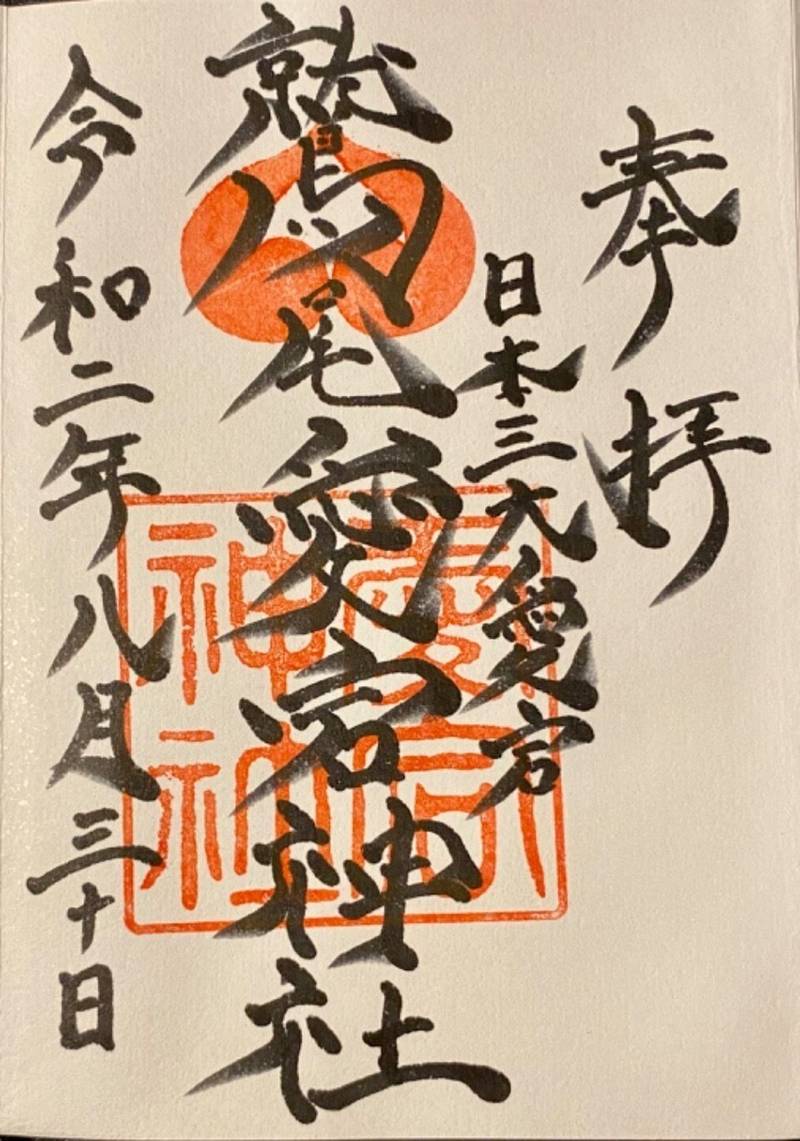 奉拝
日本三大愛宕
鷲尾愛宕神社
愛宕神社
令和二年八月三十日